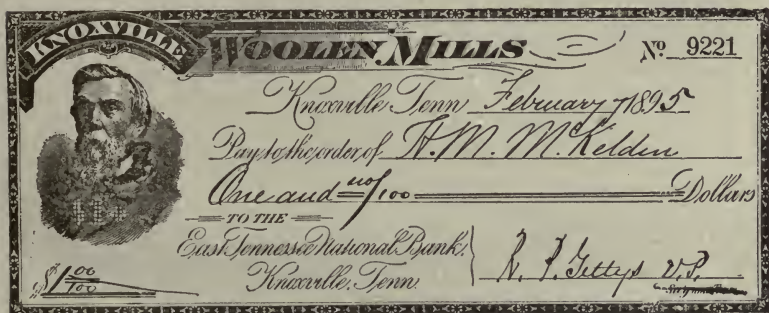 KNOXVILLE WOOLEN MILLS Nº 9221
Knoxville, Tenn February 7 1895
Pay to the order of H. M. McKeldin
One and no/100 Dollars
TO THE
East Tennessee National Bank,
Knoxville, Tenn.
R. P. Gettys V.P.
$1 00/100